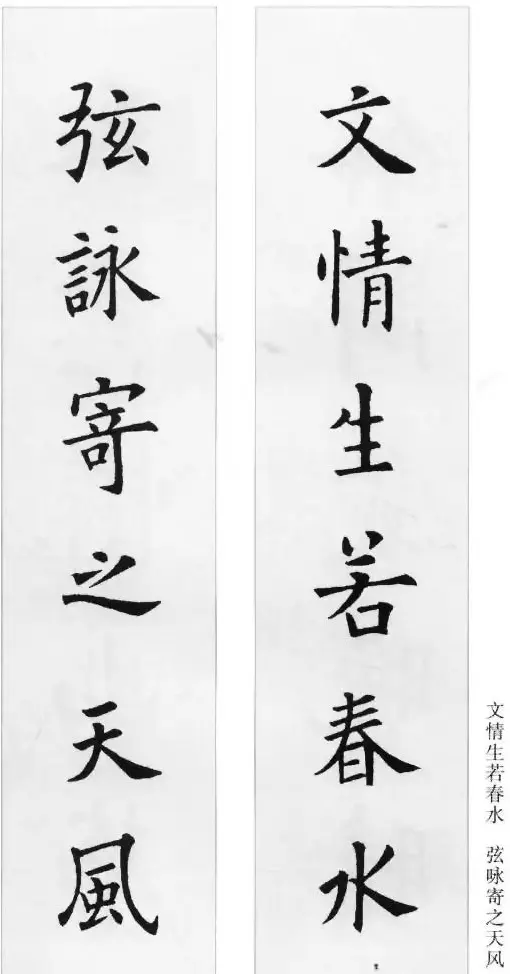 文情生若春水
弦詠寄之天風
文情生若春水 弦咏寄之天风